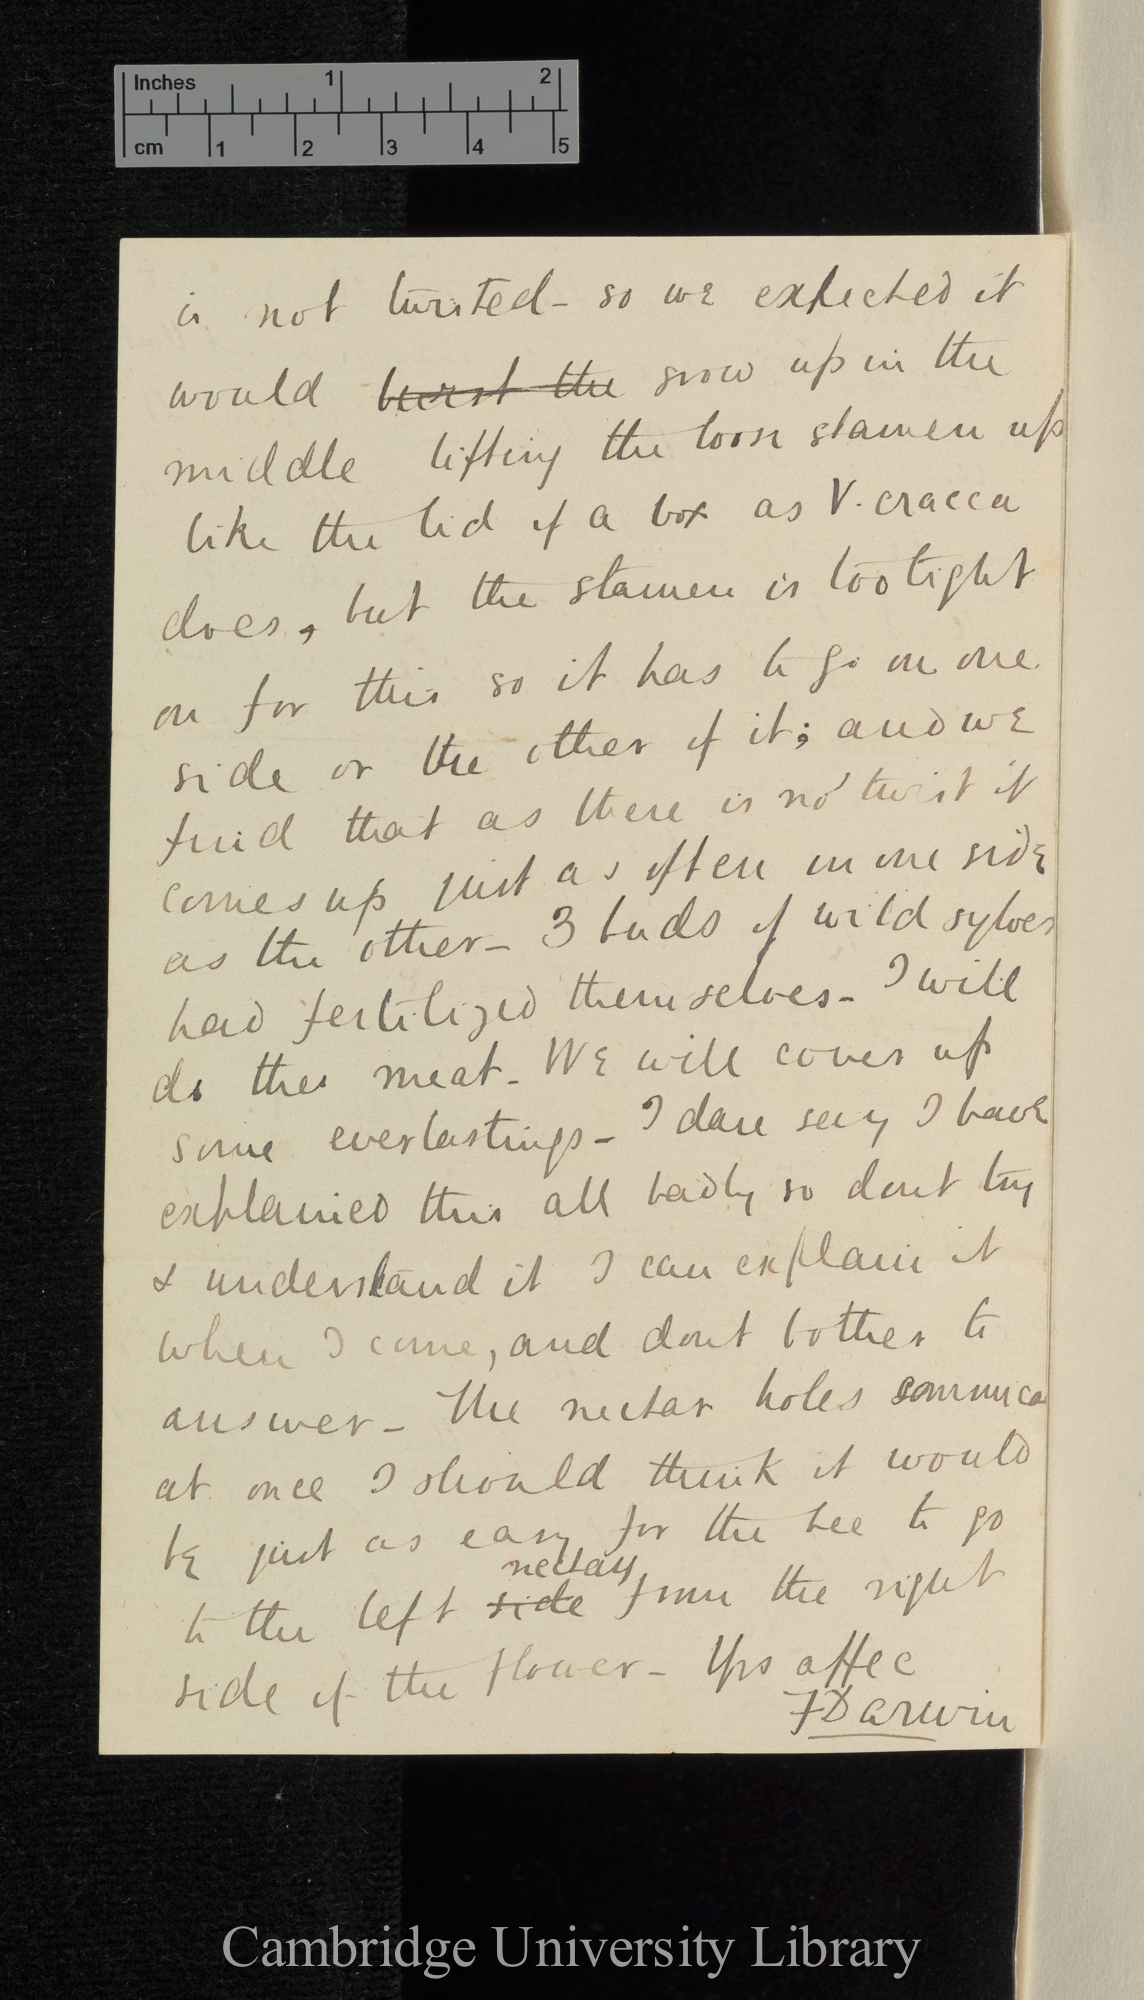 Inches 1 2
cm 1 2 3 4 5
is not twisted – so we expected it
would burst the grow up in the
middle lifting the loose stamen up
like the lid of a box as V. cracca
does, but the stamen is too tight
on for this so it has to go on one
side or the other of it; and we
find that as there is no twist it
comes up just as often on one side
as the other – 3 buds of wild sylves
had fertilized themselves – I will
do the meat – We will cover up
some everlastings – I dare say I have
explained this all badly so dont try
& understand it I can explain it
when I come, and dont bother to
answer – The nectar holes communica
at once I should think it would
be just as easy for the bee to go
nectary
to the left side from the right
side of the flower – Yrs affec
F Darwin
Cambridge University Library